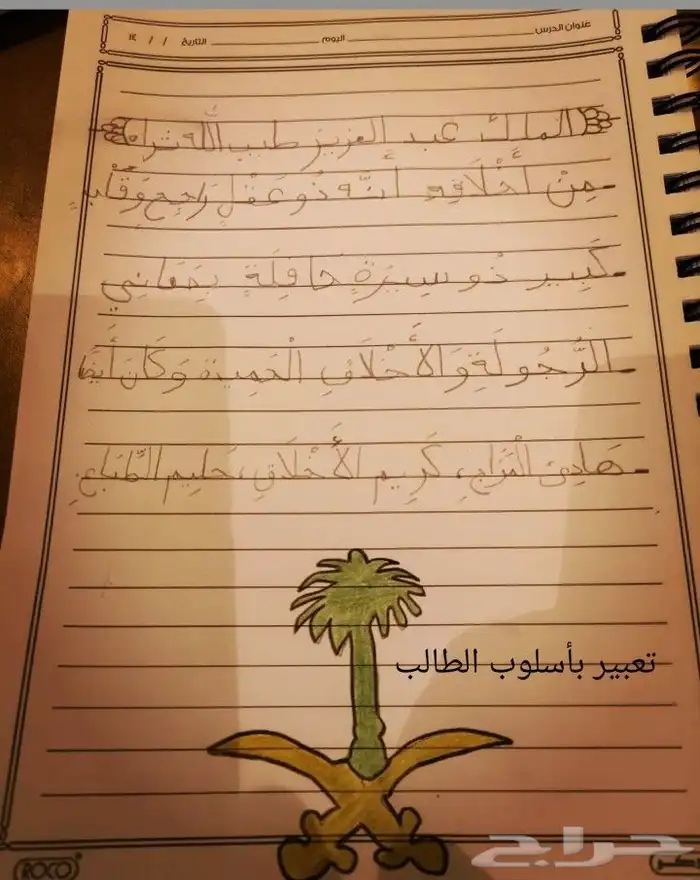 عنوان الدرس اليوم التاريخ / / ١٤
الملك عبد العزيز طيب اللّه ثراه
مِنْ أَخْلَاقِهِ أَنَّهُ ذُو عَقْلٍ رَاجِحٍ وَقَلْبٍ
كَبِير ذُو سِيرَةٍ حَافِلَةٍ بِمَعَانِي
الرُّجُولَةِ وَالأَخْلَاقِ الْحَمِيدَة وَكَانَ أَيْضًا
هَادِئ الْمَزَاجِ، كَرِيم الأَخْلَاقِ، حَلِيم الطِّبَاعِ.
تعبير بأسلوب الطالب
حراج
ROCO